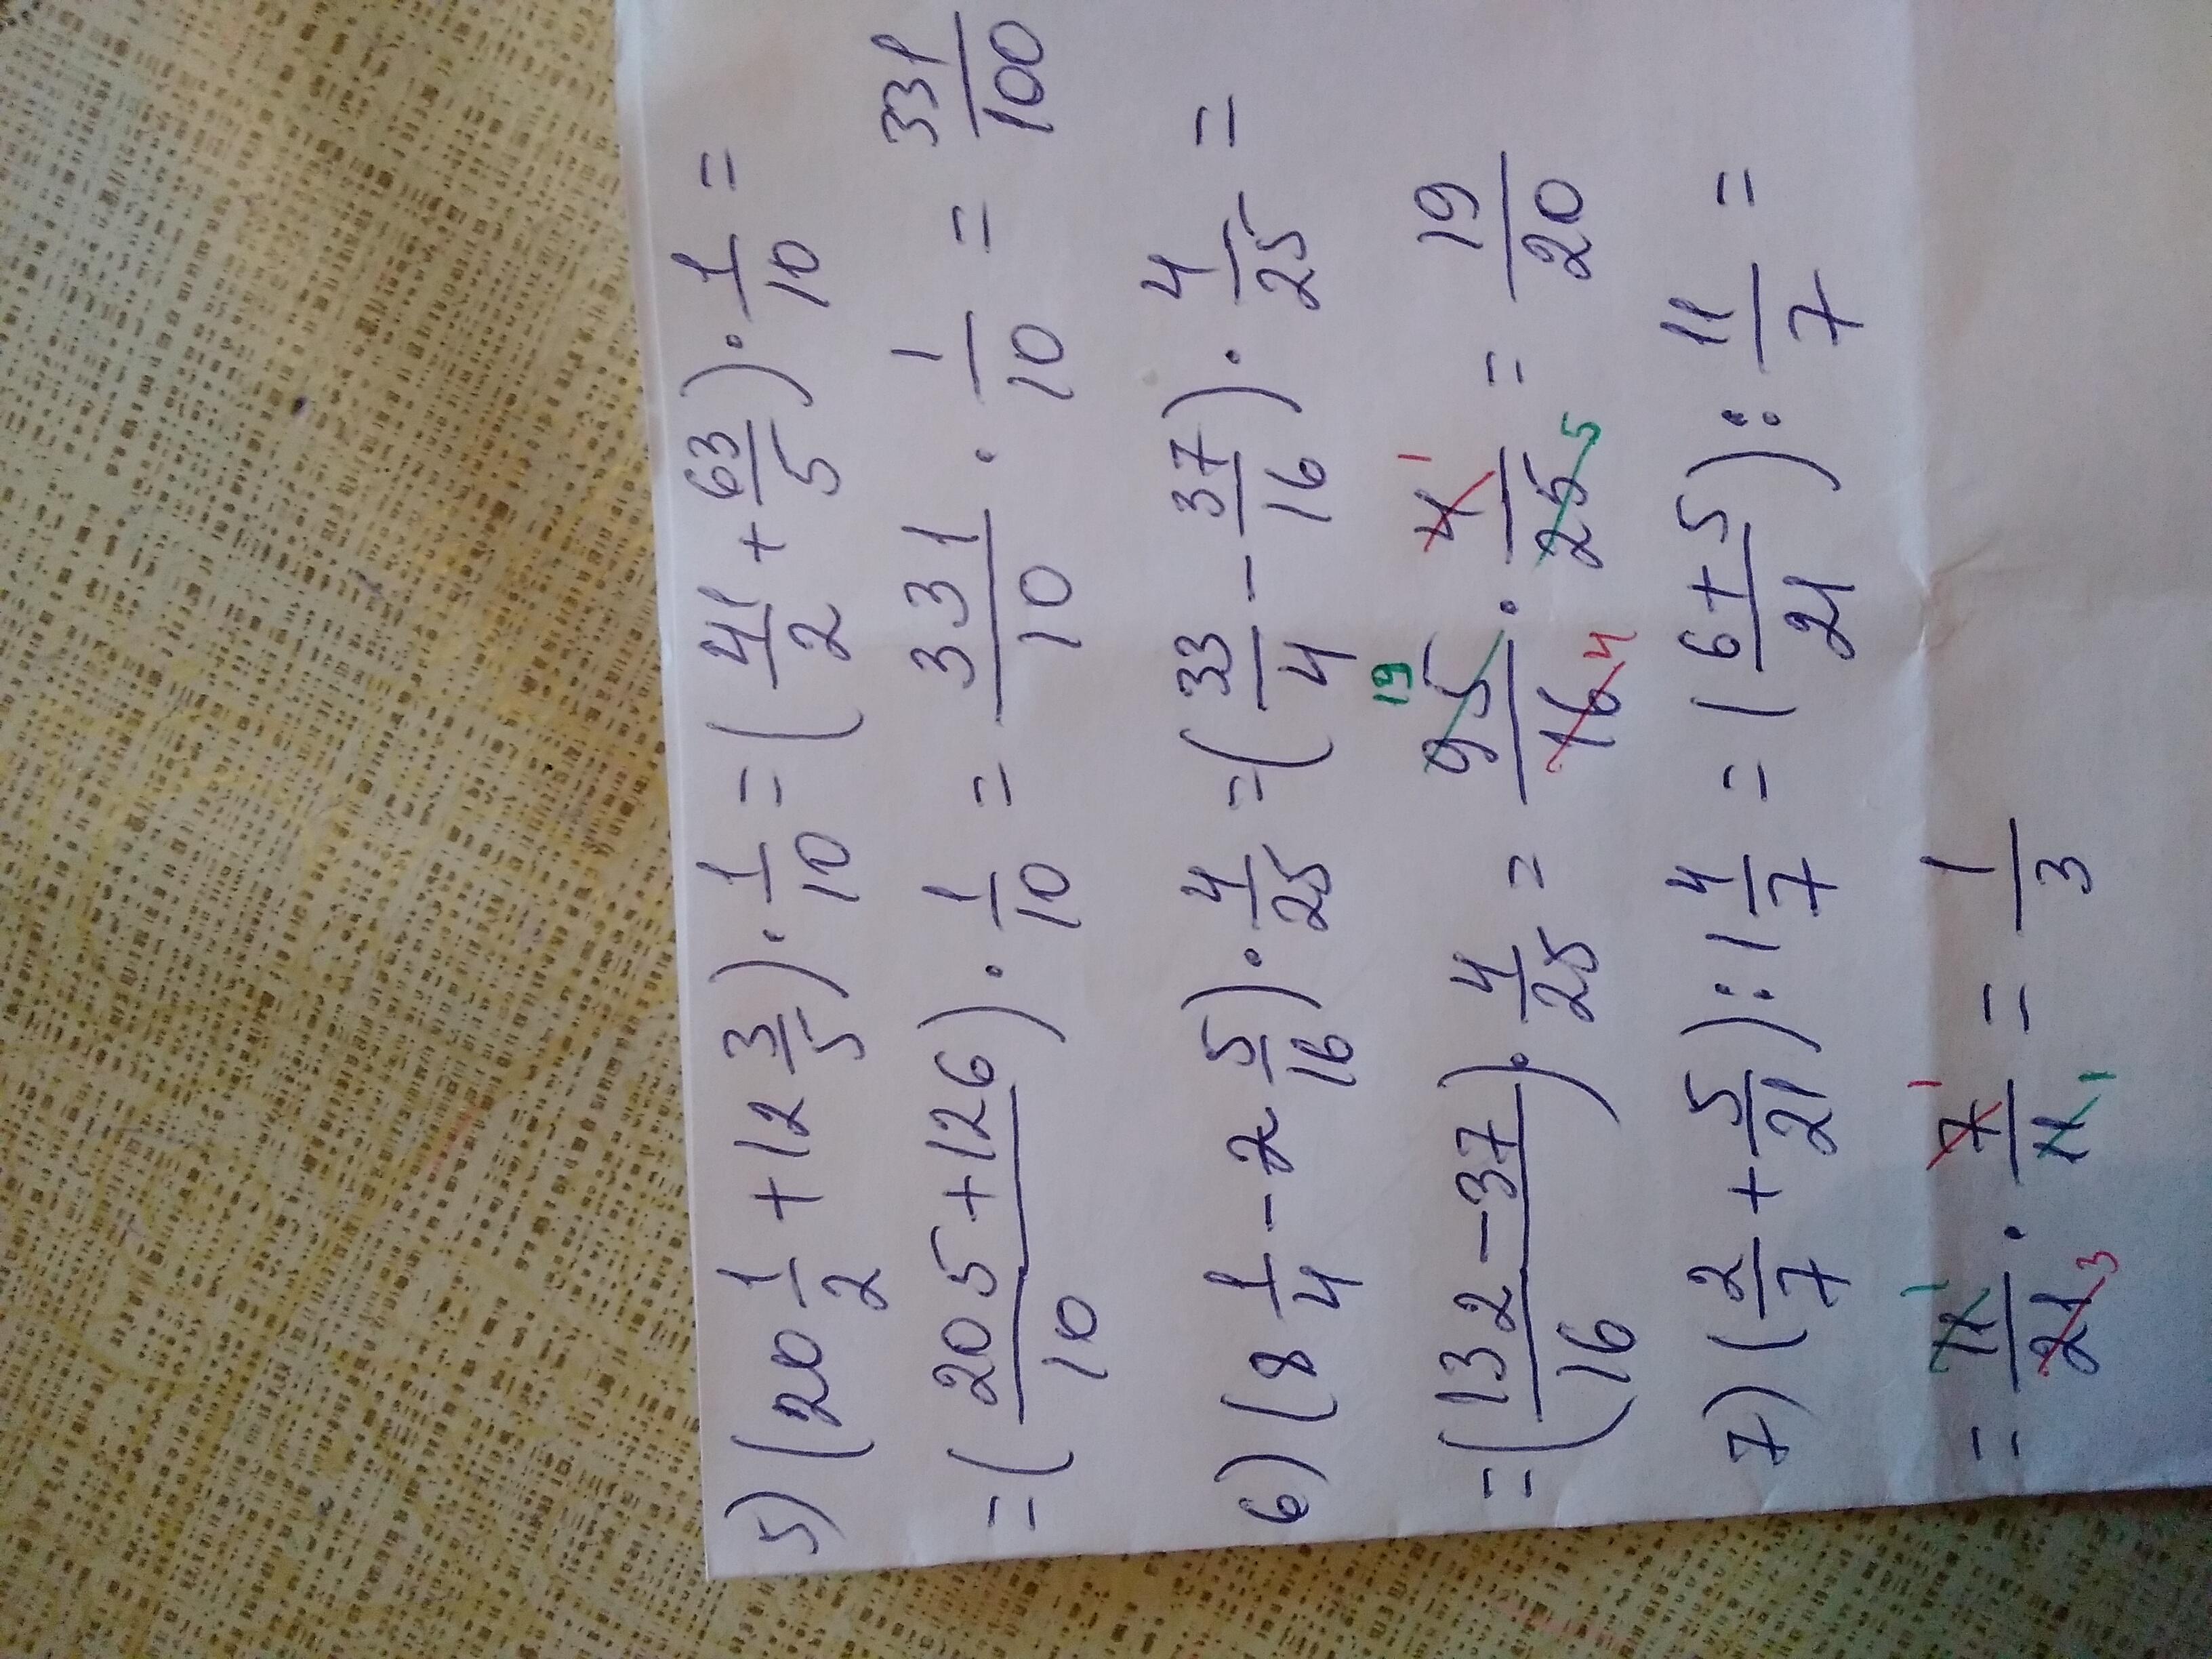 5) (20 1/2 + 12 3/5) · 1/10 = (41/2 + 63/5) · 1/10 =
= (205 + 126/10) · 1/10 = 331/10 · 1/10 = 331/100
6) (8 1/4 - 2 5/16) · 4/25 = (33/4 - 37/16) · 4/25 =
= (132 - 37/16) · 4/25 = 95 19/16 4 · 4 1/25 5 = 19/20
7) (2/7 + 5/21) : 1 4/7 = (6 + 5/21) : 11/7 =
= 11 1/21 3 · 7 1/11 1 = 1/3